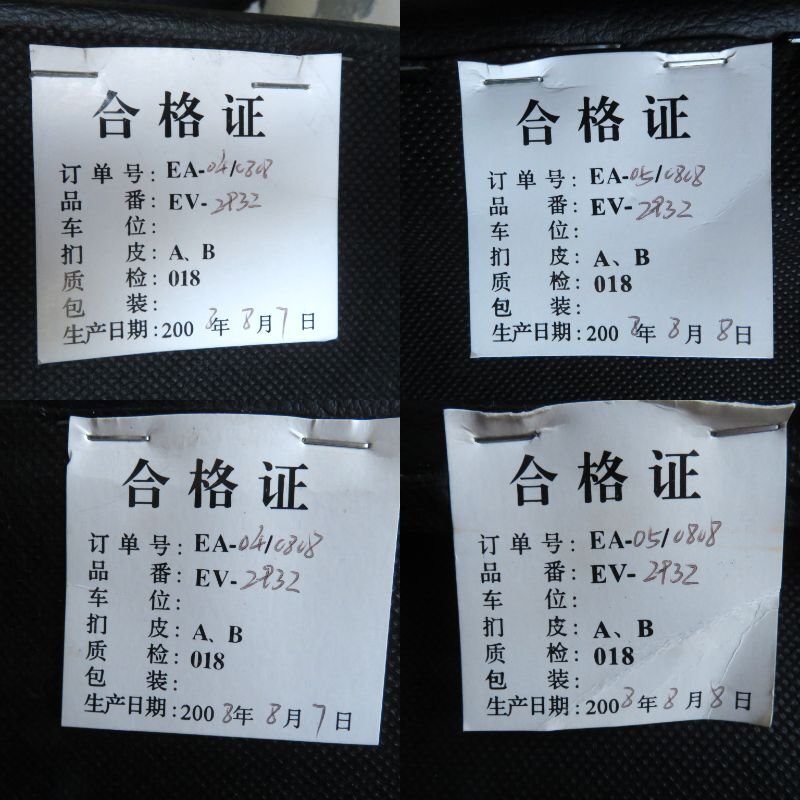 合格证
订单号：EA-04/0808
品番：EV-2832
车位：
扪皮：A、B
质检：018
包装：
生产日期：2008年8月7日
合格证
订单号：EA-05/0808
品番：EV-2832
车位：
扪皮：A、B
质检：018
包装：
生产日期：2008年8月8日
合格证
订单号：EA-04/0808
品番：EV-2832
车位：
扪皮：A、B
质检：018
包装：
生产日期：2008年8月7日
合格证
订单号：EA-05/0808
品番：EV-2832
车位：
扪皮：A、B
质检：018
包装：
生产日期：2008年8月8日